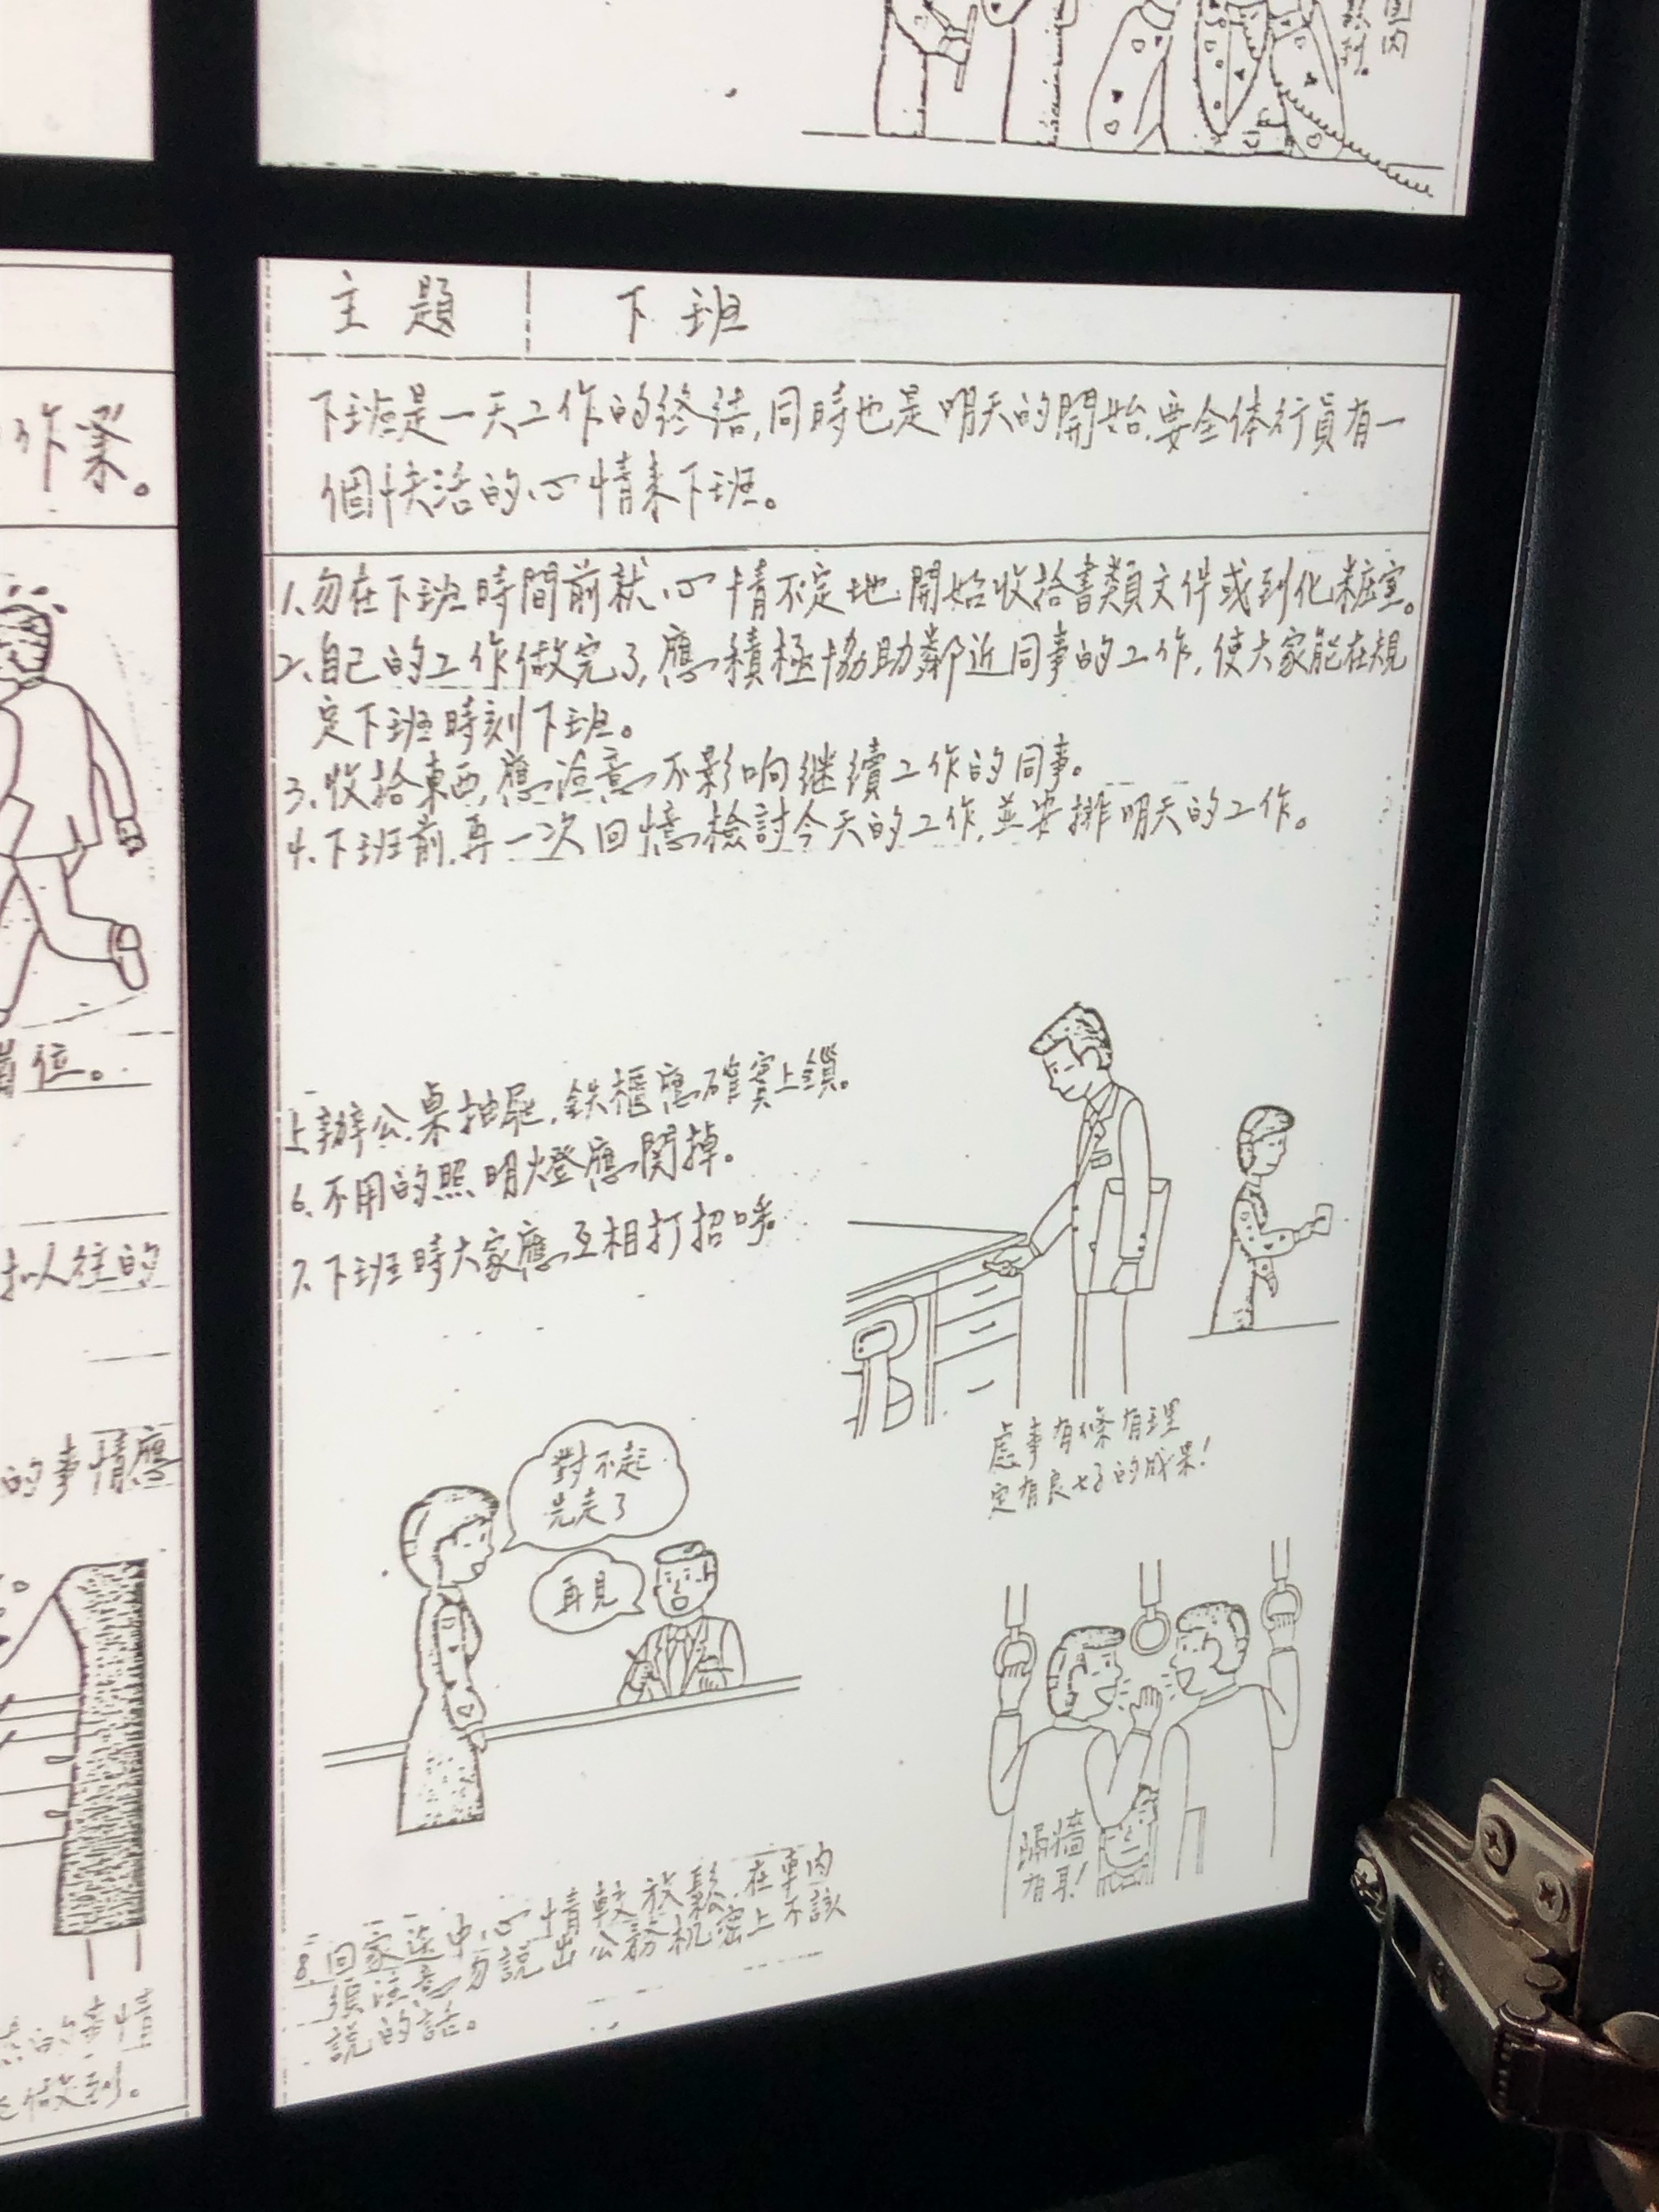 主題 下班
下班是一天工作的終结,同時也是明天的開始,要全体行員有一
個快活的心情来下班。
1.勿在下班時間前就心情不定地開始收拾書類文件或到化粧室。
2.自己的工作做完了,應積極協助鄰近同事的工作,使大家能在規
定下班時刻下班。
3.收拾東西,應注意不影响继續工作的同事。
4.下班前,再一次回憶檢討今天的工作,並安排明天的工作。
5.辦公桌抽屜,鉄櫃應確實上鎖。
6.不用的照明燈應関掉。
7.下班時大家應互相打招呼。
處事有條有理
定有良好的成果!
對不起
先走了
再見
隔牆
有耳!
8.回家途中心情較放鬆,在車内
須注意勿說出公務机密上不該
說的話。
作業。
位。
以往的
的事情應
做到。